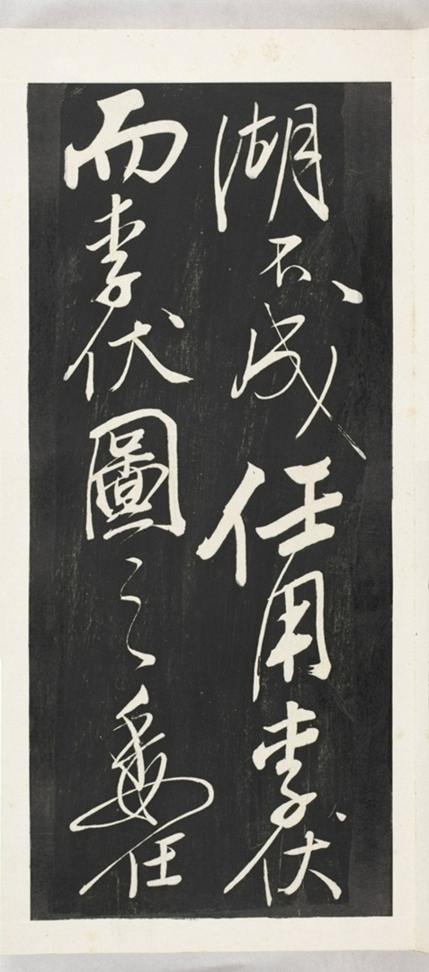 湖不成任用李伏
而李伏圖之委任